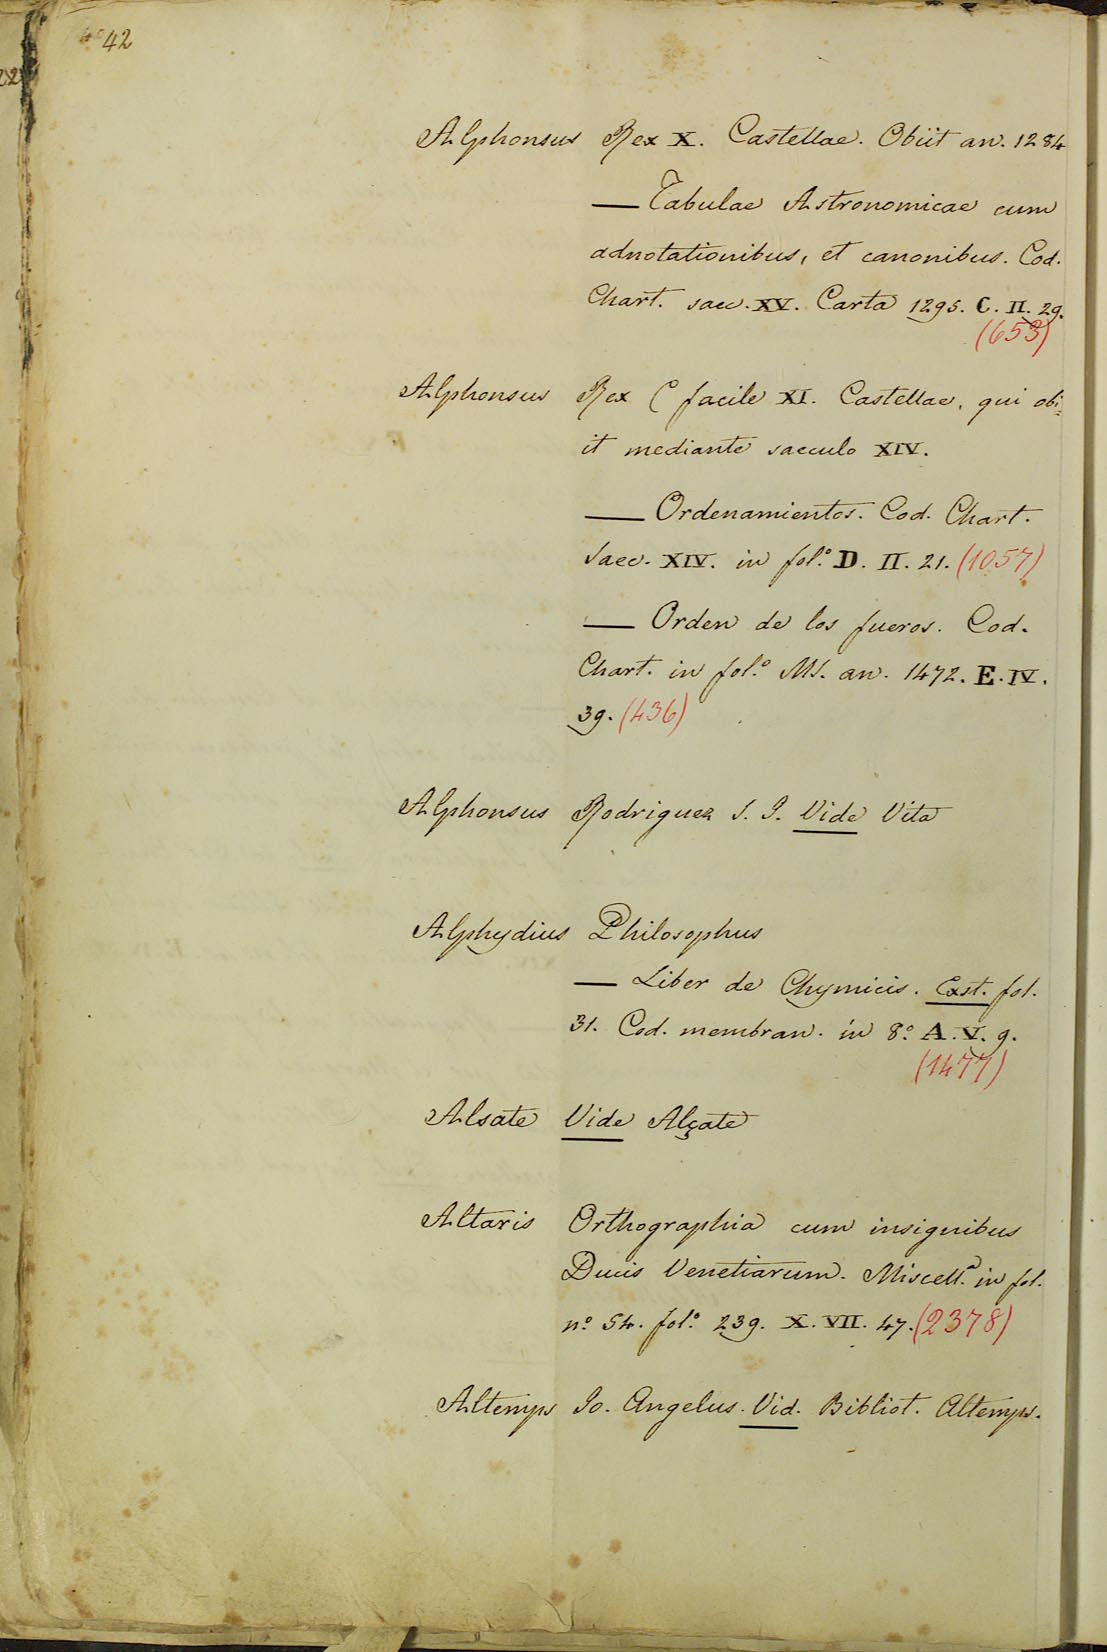 42
Alphonsus Rex X. Castellae. Obiit an. 1284
— Tabulae Astronomicae cum
adnotationibus, et canonibus. Cod.
Chart. saec. XV. Carta 1295. C. II. 29.
(653)
Alphonsus Rex (facile XI. Castellae, qui obi=
it mediante saeculo XIV.
— Ordenamientos. Cod. Chart.
Saec. XIV. in fol.º D. II. 21. (1057)
— Orden de los fueros. Cod.
Chart. in fol.º MS. an. 1472. E. IV.
39. (436)
Alphonsus Rodriguez S. J. Vide Vita
Alphydius Philosophus
— Liber de Chymicis. Exst. fol.
31. Cod. membran. in 8.º A. V. 9.
(1477)
Alsate Vide Alçate
Altaris Orthographia cum insignibus
Ducis Venetiarum. Miscell.ª in fol.
nº 54. fol.º 239. X. VII. 47. (2378)
Altemps Jo. Angelus. Vid. Bibliot. Altemps.